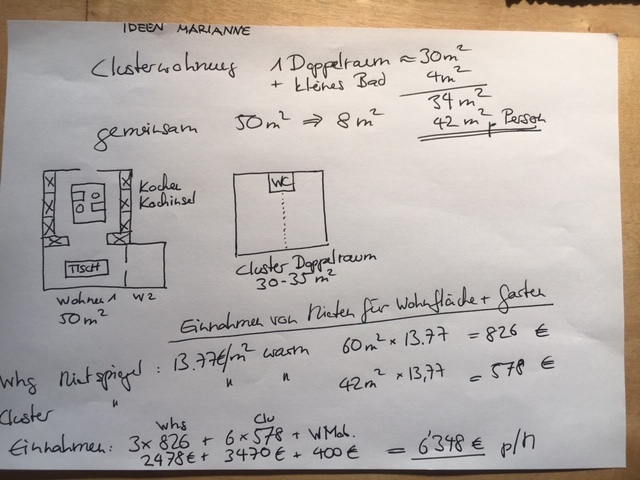 IDEEN MARIANNE
Clusterwohnung 1 Doppelraum ≈ 30m²
+ kleines Bad 4m²
34m²
gemeinsam 50m² ⇒ 8m² 42m² p Person
Kochen
Kochinsel
TISCH
Wohnen 1 W2
50m²
WC
Cluster Doppelraum
30-35m²
Einnahmen von Mieten für Wohnfläche + Garten
Whg Mietspiegel: 13.77€/m² warm 60m² × 13.77 = 826 €
Cluster " " " 42m² × 13,77 = 578 €
Whg Clu
Einnahmen: 3 × 826 + 6 × 578 + WMob.
2478€ + 3470€ + 400€ = 6'348€ p/M